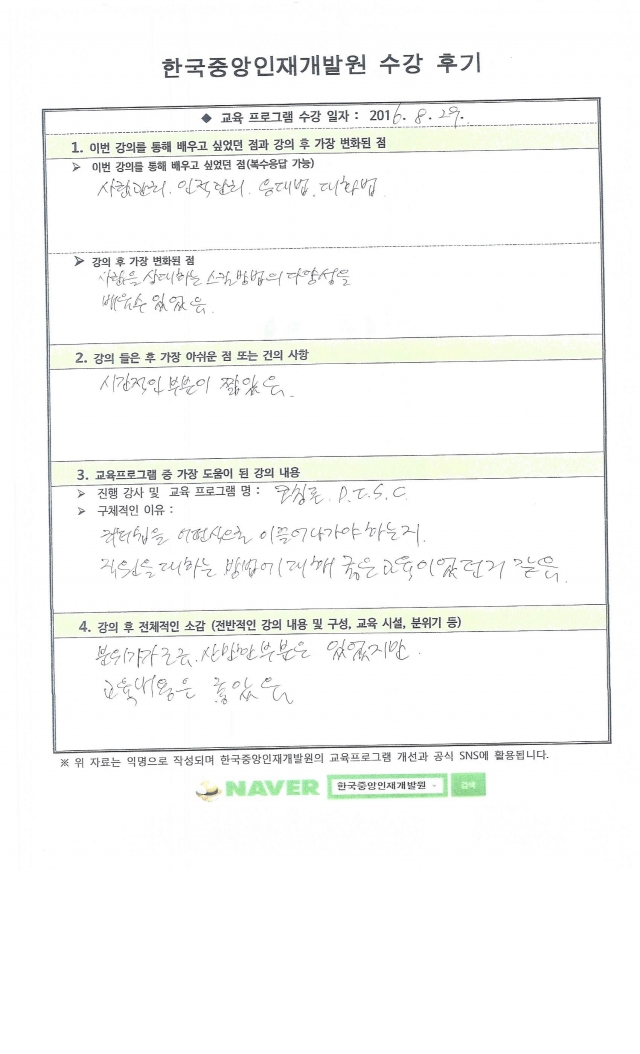 한국중앙인재개발원 수강 후기
◆ 교육 프로그램 수강 일자 : 2016. 8. 29.
1. 이번 강의를 통해 배우고 싶었던 점과 강의 후 가장 변화된 점
➢ 이번 강의를 통해 배우고 싶었던 점(복수응답 가능)
사람관리. 인적관리. 응대법. 대화법
➢ 강의 후 가장 변화된 점
사람을 상대하는 스킬방법의 다양성을
배울수 있었음.
2. 강의 들은 후 가장 아쉬운 점 또는 건의 사항
시간적인 부분이 짧았음.
3. 교육프로그램 중 가장 도움이 된 강의 내용
➢ 진행 강사 및 교육 프로그램 명 : D.I.S.C.
➢ 구체적인 이유 :
어떤식으로 이끌어나가야 하는지.
직원을 대하는 방법에 대해 좋은교육이었던거 같음.
4. 강의 후 전체적인 소감 (전반적인 강의 내용 및 구성, 교육 시설, 분위기 등)
분위기가 조금 산만한부분은 있었지만.
교육내용은 좋았음
※ 위 자료는 익명으로 작성되며 한국중앙인재개발원의 교육프로그램 개선과 공식 SNS에 활용됩니다.
NAVER 한국중앙인재개발원 검색